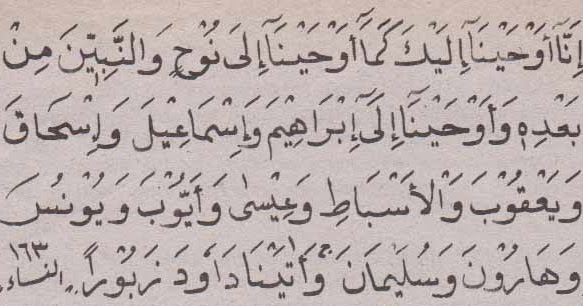 إِنَّآ أَوْحَيْنَآ إِلَيْكَ كَمَآ أَوْحَيْنَآ إِلَى نُوْحٍ وَالنَّبِيِّنَ مِنْ
بَعْدِهِ وَأَوْحَيْنَآ إِلَىٓ إِبْرَاهِيْمَ وَإِسْمَاعِيْلَ وَإِسْحَاقَ
وَيَعْقُوْبَ وَالْأَسْبَاطِ وَعِيْسٰى وَأَيُّوْبَ وَيُوْنُسَ
وَهَارُوْنَ وَسُلَيْمَانَ ۚ وَأٰتَيْنَا دَاوٗدَ زَبُوْرًا ۔ النساء ١٦٣